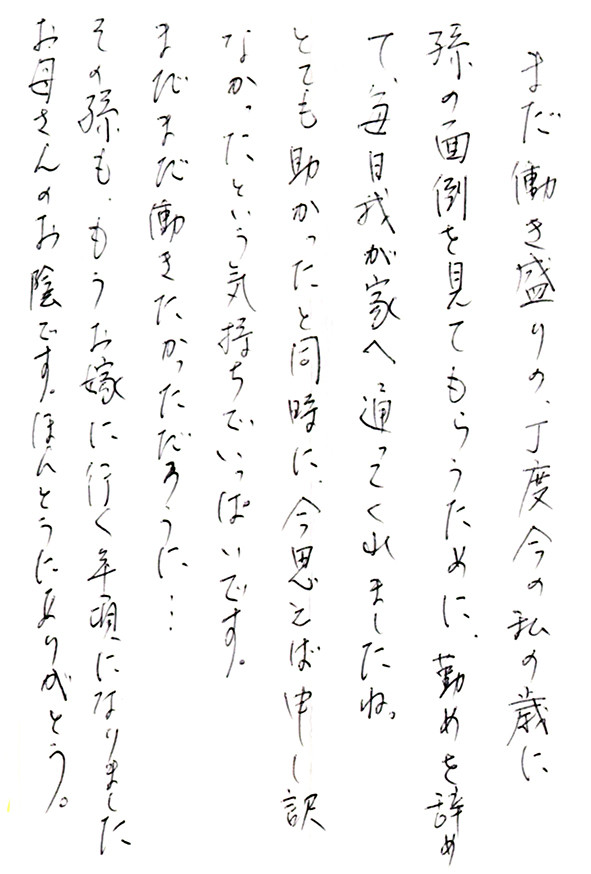 まだ働き盛りの、丁度今の私の歳に
孫の面倒を見てもらうために、勤めを辞め
て、毎日我が家へ通ってくれましたね。
とても助かったと同時に、今思えば申し訳
なかったという気持ちでいっぱいです。
まだまだ働きたかっただろうに…
その孫も、もうお嫁に行く年頃になりました
お母さんのお陰です。ほんとうにありがとう。